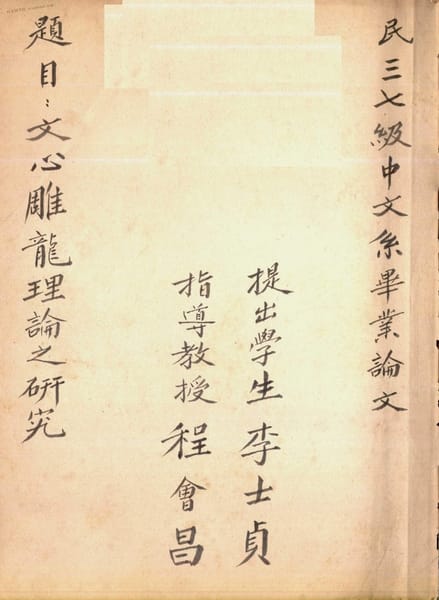 民三七級中文系畢業論文
提出學生李士貞
指導教授程會昌
題目：文心雕龍理論之研究